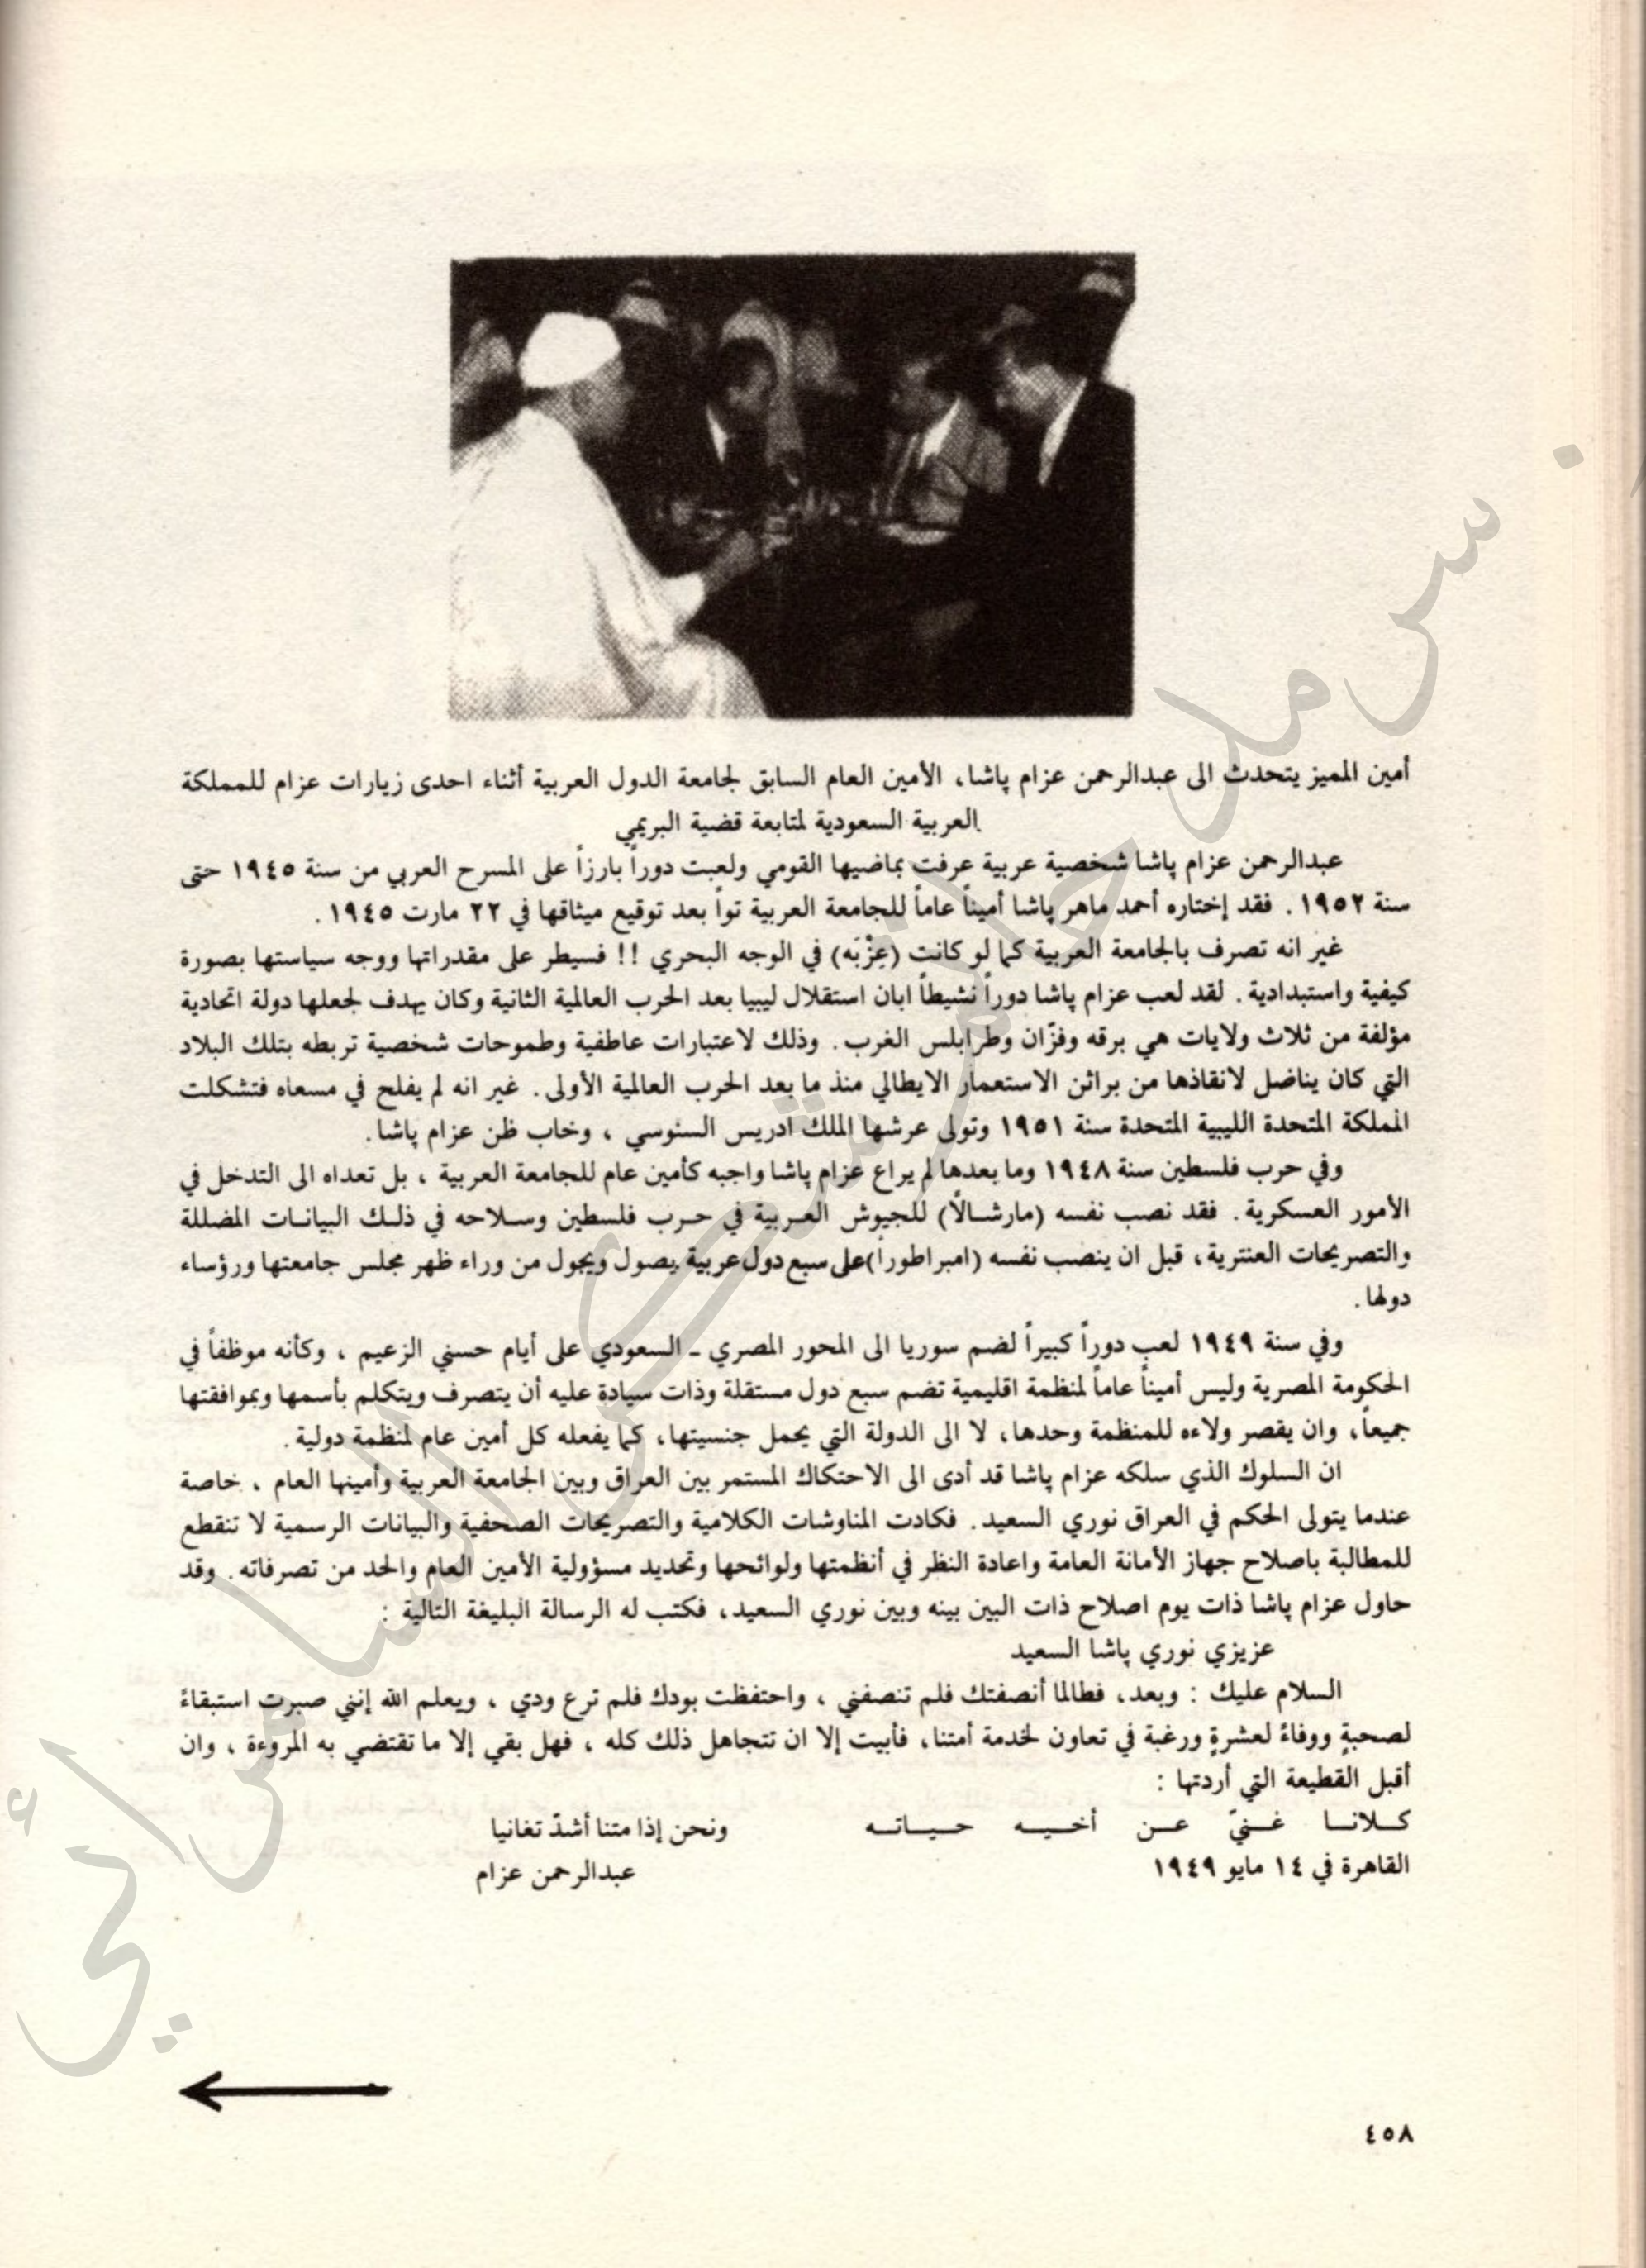 أمين المميز يتحدث الى عبدالرحمن عزام پاشا، الأمين العام السابق لجامعة الدول العربية أثناء احدى زيارات عزام للمملكة
العربية السعودية لمتابعة قضية البريمي
عبدالرحمن عزام پاشا شخصية عربية عرفت بماضيها القومي ولعبت دوراً بارزاً على المسرح العربي من سنة ١٩٤٥ حتى
سنة ١٩٥٢ . فقد إختاره أحمد ماهر پاشا أميناً عاماً للجامعة العربية تواً بعد توقيع ميثاقها في ٢٢ مارت ١٩٤٥ .
غير انه تصرف بالجامعة العربية كما لو كانت (عِزْبَه) في الوجه البحري !! فسيطر على مقدراتها ووجه سياستها بصورة
كيفية واستبدادية . لقد لعب عزام پاشا دوراً نشيطاً ابان استقلال ليبيا بعد الحرب العالمية الثانية وكان يهدف لجعلها دولة اتحادية
مؤلفة من ثلاث ولايات هي برقه وفزّان وطرابلس الغرب . وذلك لاعتبارات عاطفية وطموحات شخصية تربطه بتلك البلاد
التي كان يناضل لانقاذها من براثن الاستعمار الايطالي منذ ما بعد الحرب العالمية الأولى . غير انه لم يفلح في مسعاه فتشكلت
المملكة المتحدة الليبية المتحدة سنة ١٩٥١ وتولى عرشها الملك ادريس السنوسي ، وخاب ظن عزام پاشا .
وفي حرب فلسطين سنة ١٩٤٨ وما بعدها لم يراع عزام پاشا واجبه كأمين عام للجامعة العربية ، بل تعداه الى التدخل في
الأمور العسكرية . فقد نصب نفسه (مارشالاً) للجيوش العربية في حرب فلسطين وسلاحه في ذلك البيانات المضللة
والتصريحات العنترية، قبل ان ينصب نفسه (امبراطوراً) على سبع دول عربية يصول ويجول من وراء ظهر مجلس جامعتها ورؤساء
دولها .
وفي سنة ١٩٤٩ لعب دوراً كبيراً لضم سوريا الى المحور المصري ـ السعودي على أيام حسني الزعيم ، وكأنه موظفاً في
الحكومة المصرية وليس أميناً عاماً لمنظمة اقليمية تضم سبع دول مستقلة وذات سيادة عليه أن يتصرف ويتكلم بأسمها وبموافقتها
جميعاً، وان يقصر ولاءه للمنظمة وحدها، لا الى الدولة التي يحمل جنسيتها، كما يفعله كل أمين عام لمنظمة دولية .
ان السلوك الذي سلكه عزام پاشا قد أدى الى الاحتكاك المستمر بين العراق وبين الجامعة العربية وأمينها العام ، خاصة
عندما يتولى الحكم في العراق نوري السعيد . فكادت المناوشات الكلامية والتصريحات الصحفية والبيانات الرسمية لا تنقطع
للمطالبة باصلاح جهاز الأمانة العامة واعادة النظر في أنظمتها ولوائحها وتحديد مسؤولية الأمين العام والحد من تصرفاته . وقد
حاول عزام پاشا ذات يوم اصلاح ذات البين بينه وبين نوري السعيد، فكتب له الرسالة البليغة التالية :
عزيزي نوري پاشا السعيد
السلام عليك : وبعد، فطالما أنصفتك فلم تنصفني ، واحتفظت بودك فلم ترع ودي ، ويعلم الله إنني صبرت استبقاءً
لصحبةٍ ووفاءً لعشرةٍ ورغبة في تعاون لخدمة أمتنا، فأبيت إلا ان تتجاهل ذلك كله ، فهل بقي إلا ما تقتضي به المروءة ، وان
أقبل القطيعة التي أردتها :
كلانا غنيّ عن أخيه حياته ونحن إذا متنا أشدّ تغانيا
القاهرة في ١٤ مايو ١٩٤٩ عبدالرحمن عزام
٤٥٨